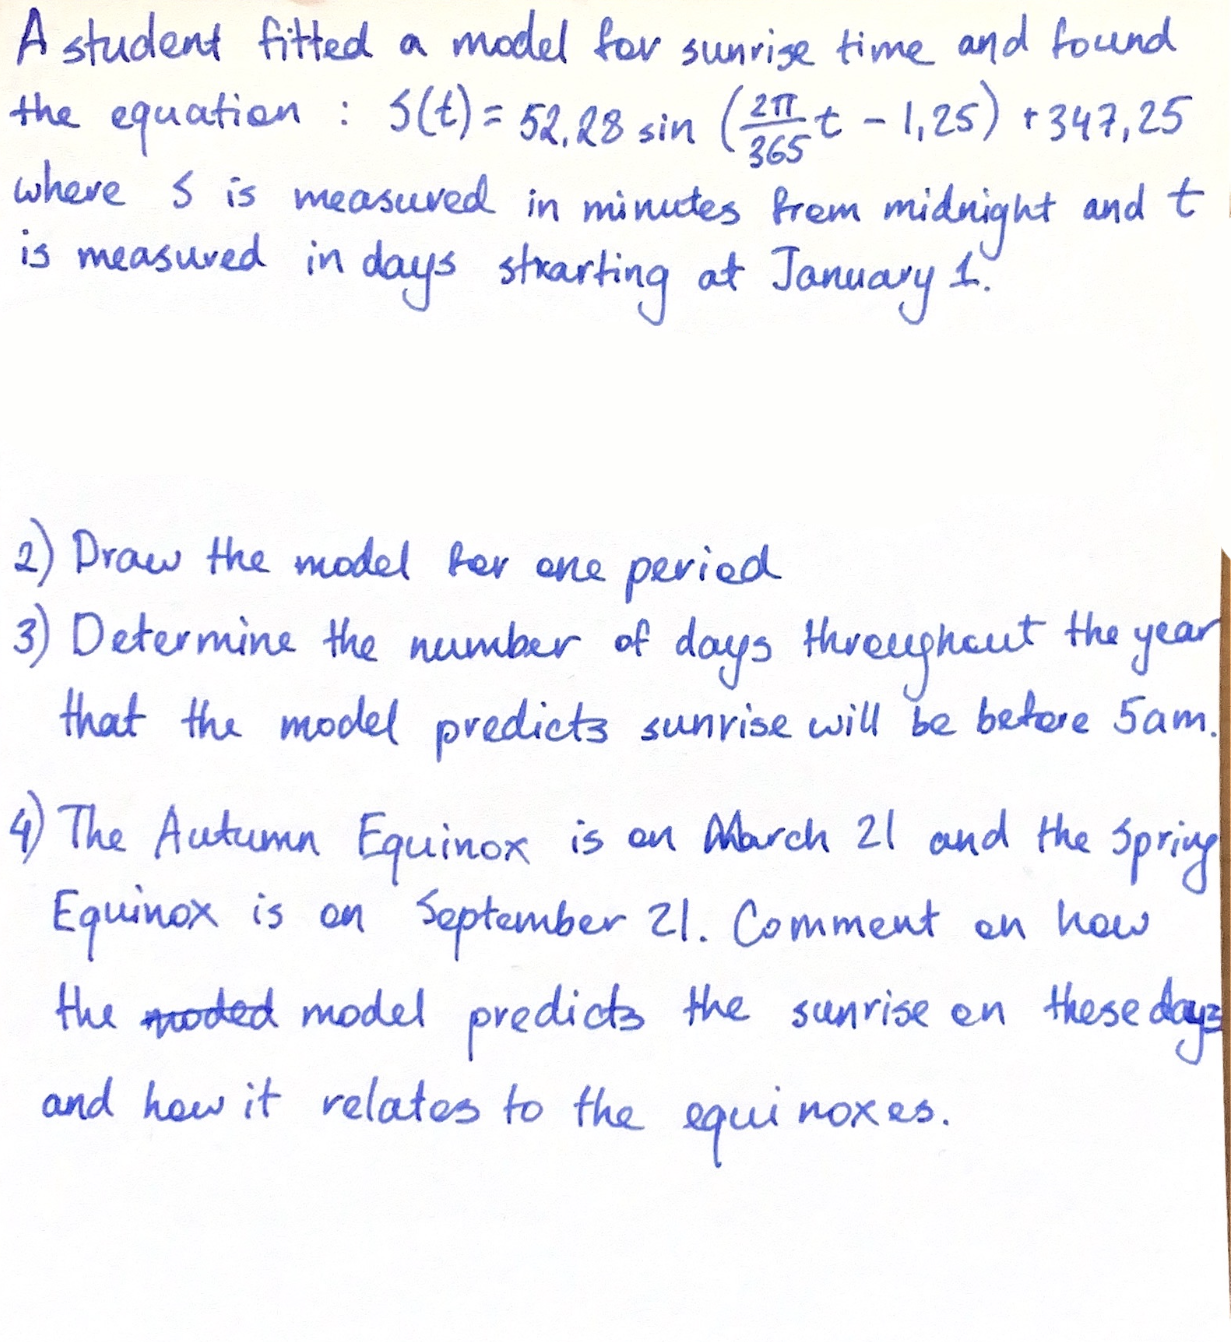 A student fitted a model for sunrise time and found
the equation : S(t) = 52,28 sin (2π/365 t - 1,25) + 347,25
where S is measured in minutes from midnight and t
is measured in days starting at January 1.
2) Draw the model for one period
3) Determine the number of days throughout the year
that the model predicts sunrise will be before 5am.
4) The Autumn Equinox is on March 21 and the Spring
Equinox is on September 21. Comment on how
the moded model predicts the sunrise on these days
and how it relates to the equinoxes.